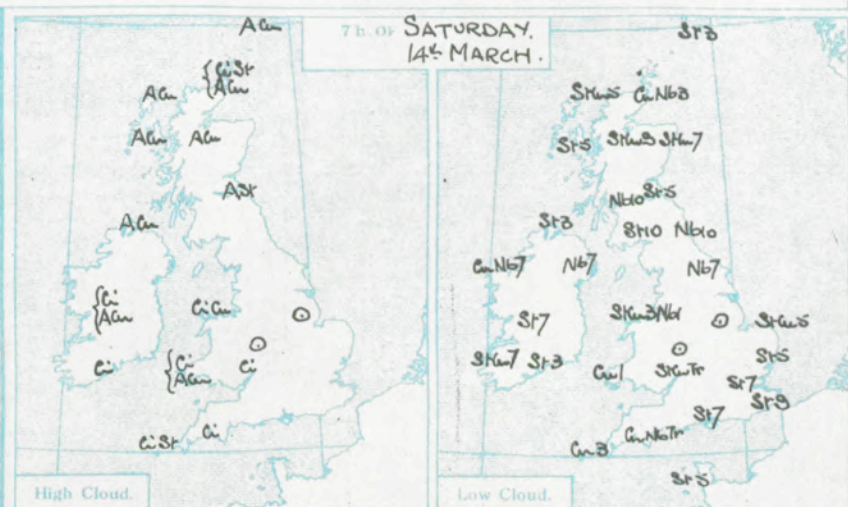 7 h. OF SATURDAY.
14th MARCH.
ACu
{CiSt
ACu
ACu
ACu ACu
ASt
ACu
{Ci
ACu
CiCu
Ci
{Ci
ACu
Ci
CiSt Ci
High Cloud.
St3
StCu5 CuNb3
St5 StCu3 StCu7
Nb10 St5
St3 St10 Nb10
CuNb7 Nb7 Nb7
St7 StCu3 Nb1 StCu5
StCu7 St3 Cu1 StCuTr St5
St7 St9
St7
Cu3 CuNbTr
St5
Low Cloud.